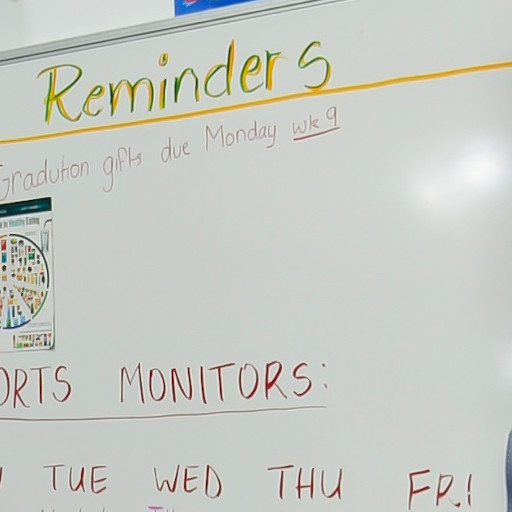 Reminders
Gradution gifts due Monday wk 9
to Healthy Eating
ORTS MONITORS:
TUE WED THU FRI